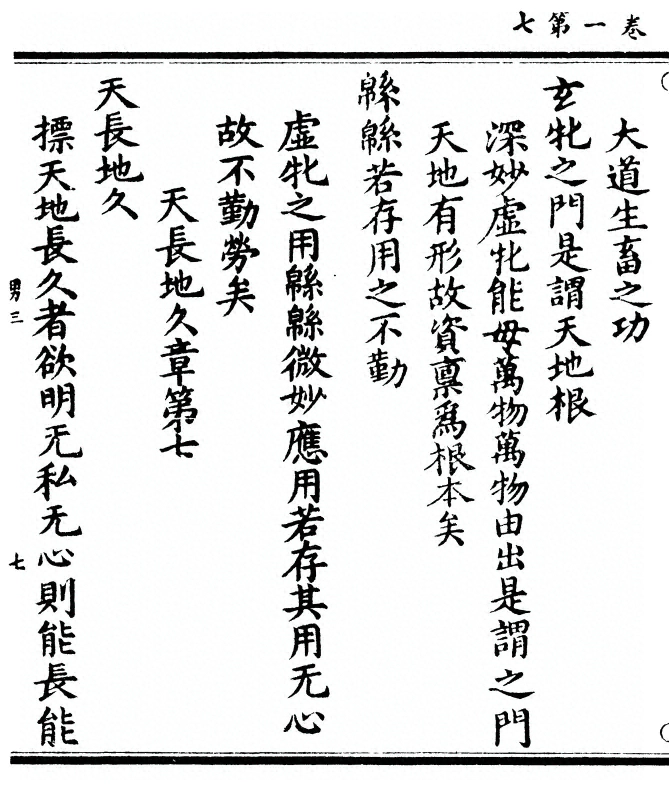 卷一第七
大道生畜之功
玄牝之門是謂天地根
深妙虛牝能母萬物萬物由出是謂之門
天地有形故資稟爲根本矣
緜緜若存用之不勤
虛牝之用緜緜微妙應用若存其用无心
故不勤勞矣
天長地久章第七
天長地久
摽天地長久者欲明无私无心則能長能
男三
七